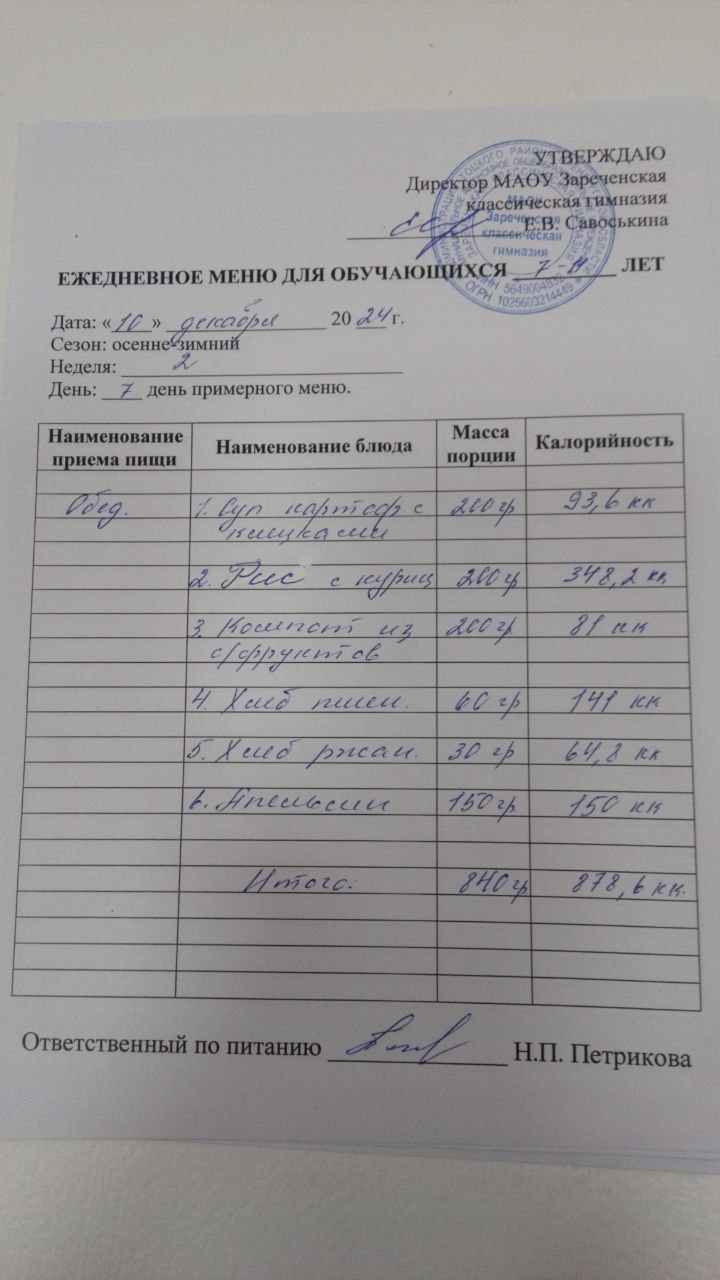 УТВЕРЖДАЮ
Директор МАОУ Зареченская
классическая гимназия
Е.В. Савоськина
МАОУ
Зареченская
классическая
гимназия
ОГРН 1025603214449
ЕЖЕДНЕВНОЕ МЕНЮ ДЛЯ ОБУЧАЮЩИХСЯ 7-11 ЛЕТ
Дата: «10» декабря 2024 г.
Сезон: осенне-зимний
Неделя: 2
День: 7 день примерного меню.
Наименование приема пищи Наименование блюда Масса порции Калорийность
Обед. 1. Суп картоф с 200 гр 93,6 кк
клецками
2. Рис с куриц 200 гр 348,2 кк
3. Компот из 200 гр 81 кк
с/фруктов
4. Хлеб пшен. 60 гр 141 кк
5. Хлеб ржан. 30 гр 64,8 кк
6. Апельсин 150 гр 150 кк
Итого: 840 гр 878,6 кк.
Ответственный по питанию Н.П. Петрикова